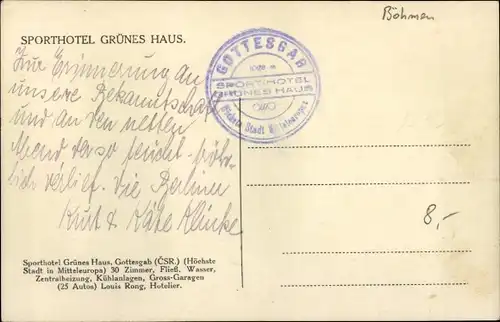 Böhmen
SPORTHOTEL GRÜNES HAUS.
GOTTESGAB
SPORT-HOTEL
GRÜNES HAUS
Höchste Stadt Mitteleuropas
Zur Erinnerung an
unsere Bekanntschaft
und an den netten
Abend der so feucht-fröh-
lich verlief. Die Berliner
Kurt & Käte Klincke
8,-
Sporthotel Grünes Haus, Gottesgab (ČSR.) (Höchste
Stadt in Mitteleuropa) 30 Zimmer, Fließ. Wasser,
Zentralheizung, Kühlanlagen, Gross-Garagen
(25 Autos) Louis Rong, Hotelier.